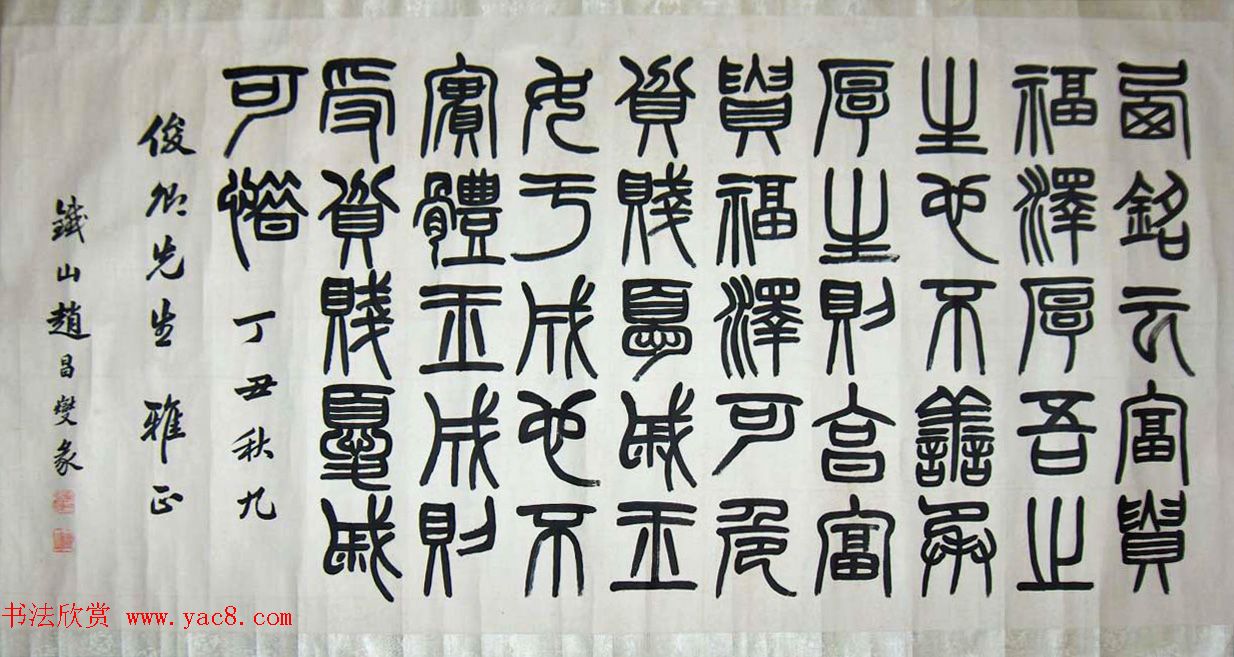 西銘云富貴
福澤厚吾之
生也不善承
厚生則享富
貴福澤可危
貧賤憂戚玉
女于成也不
實體玉成則
受貧賤憂戚
可惜 丁丑秋九
俊卿先生雅正
鐵山趙昌燮篆
书法欣赏 www.yac8.com